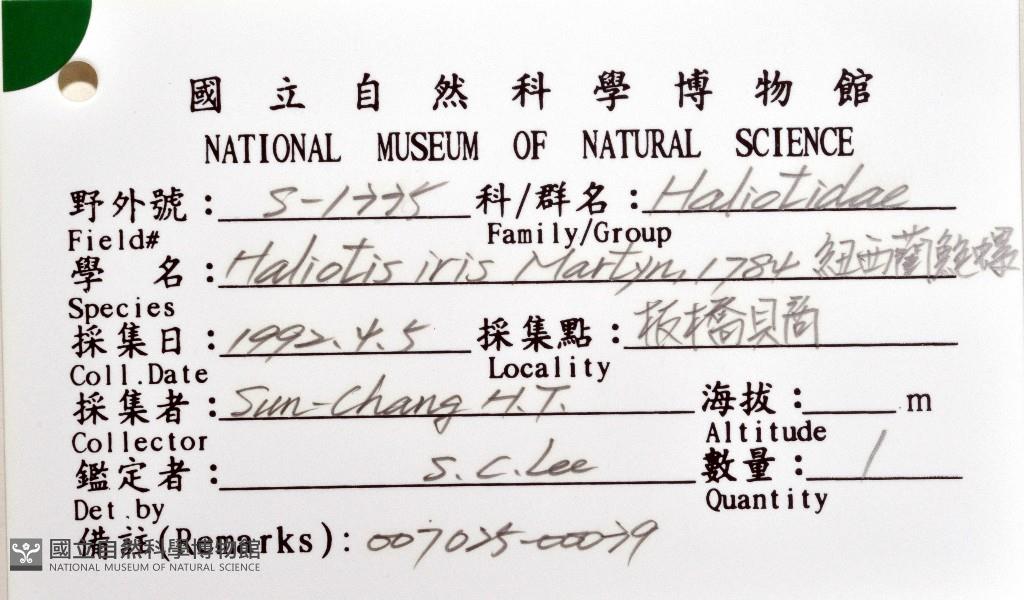 國立自然科學博物館
NATIONAL MUSEUM OF NATURAL SCIENCE
野外號：S-1775 科/群名：Haliotidae
Field# Family/Group
學 名：Haliotis iris Martyn, 1784 紐西蘭鮑螺
Species
採集日：1992.4.5 採集點：板橋貝商
Coll.Date Locality
採集者：Sun-Chang H.T. 海拔： m
Collector Altitude
鑑定者：S.C.Lee 數量：1
Det.by Quantity
備註(Remarks):
國立自然科學博物館
NATIONAL MUSEUM OF NATURAL SCIENCE